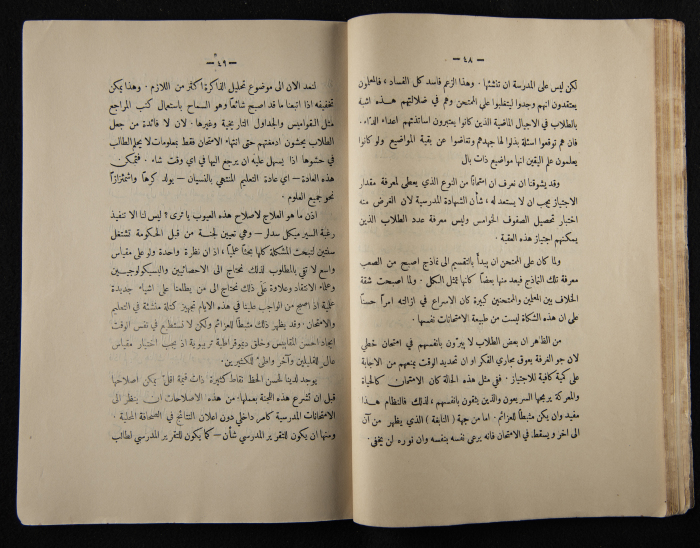 — ٤٨ —
لكن ليس على المدرسة ان تنشئها . وهذا الزعم فاسد كل الفساد ، فالمعلمون
يعتقدون انهم وجدوا ليتغلبوا على الممتحن وهم في ضلالتهم هـذه اشبه
بالطلاب في الاجيال الماضية الذين كانوا يعتبرون اساتذتهم اعداء الداء .
فان هم توقعوا اسئلة بذلوا لها جهدهم وتغاضوا عن بقية المواضيع ولو كانوا
يعلمون علم اليقين انها مواضيع ذات بال
وقد يشوقنا ان نعرف ان امتحاناً من النوع الذي يعطى لمعرفة مقدار
الاجتياز يجب ان لا يستعمد له ، شأن الشهادة المدرسية لان الغرض منه
اختبار تحصيل الصفوف الخوامس وليس معرفة عدد الطلاب الذين
يمكنهم اجتياز هذه العقبة .
ولما كان على الممتحن ان يبدأ بالتقسيم الى نماذج اصبح من الصعب
معرفة تلك النماذج فبعد منها بعضاً كانها تمثل الكل . ولما اصبحت شقة
الخلاف بين المعلمين والممتحنين كبيرة كان الاسراع في ازالته امراً حسناً
على ان هذه الشكاة ليست من طبيعة الامتحانات نفسها .
من الظاهر ان بعض الطلاب لا يبرزون بانفسهم في امتحان خطي
لان جو الغرفة يعوق مجاري الفكر او ان تحديد الوقت يمنعهم من الاجابة
على كمية كافية للاجتياز . ففي مثل هذه الحالة كان الامتحان كالحياة
والمعركة يربحها السريعون والذين يثقون بانفسهم ، لذلك فالنظام هـذا
مفيد وان يكن مثبطاً للعزائم . اما من جهة ( النابغة ) الذي يظهر من آن
الى آخر ويسقط في الامتحان فانه يرعى نفسه بنفسه وان نوره لن يخفى .
— ٤٩ —
لنعد الان الى موضوع تحليل الذاكرة اكثر من اللازم . وهذا يمكن
تخفيفه اذا اتبعنا ما قد اصبح شائعاً وهو السماح باستعمال كتب المراجع
مثل القواميس والجداول التاريخية وغيرها . لان لا فائدة من جعل
الطلاب يحشون ادمغتهم حتى انتهاء الامتحان فقط بمعلومات لا يجد الطالب
في حشوها اذا يسهل عليه ان يرجع اليها في اي وقت شاء . فتمكن
هذه العادة — اي عادة التعليم المنتهي بالنسيان — يولد كرهاً واشمئزازاً
نحو جميع العلوم .
اذن ما هو العلاج لاصلاح هذه العيوب يا ترى ؟ ليس لنا الا تنفيذ
رغبة السير ميكل سدلر — وهي تعيين لجنة من قبل الحكومة تشتغل
سنتين لتبحث المشكلة كلها بحثاً علمياً ، اذ ان نظرة واحدة ولو على مقياس
واسع لا تفي بالمطلوب لذلك نحتاج الى الاحصائيين والبسيكولوجيـين
وعلماء الانتقاد وعلاوة على ذلك نحتاج الى من يطلعنا على اشياء جديدة
عملية اذ اصبح من الواجب علينا في هذه الايام تجهيز كتلة منتشئة في التعليم
والامتحان . وقد يظهر ذلك مثبطاً للعزائم ولكن لا نستطيع في نفس الوقت
ايجاد احسن المقاييس وخلق ديموقراطية تربوية اذ يجب اختيار مقياس
عال للقليلين وآخر واطئ للكثيرين .
يوجد لدينا لحسن الحظ نقاط كثيرة ذات قيمة اقل يمكن اصلاحها
قبل ان تشرع هذه اللجنة بعملها . من هذه الاصلاحات ان ينظر الى
الامتحانات المدرسية كامر داخلي دون اعلان النتائج في الصحافة المحلية .
ومنها ان يكون للتقرير المدرسي شأن — كما يكون للتقرير المدرسي لطالب